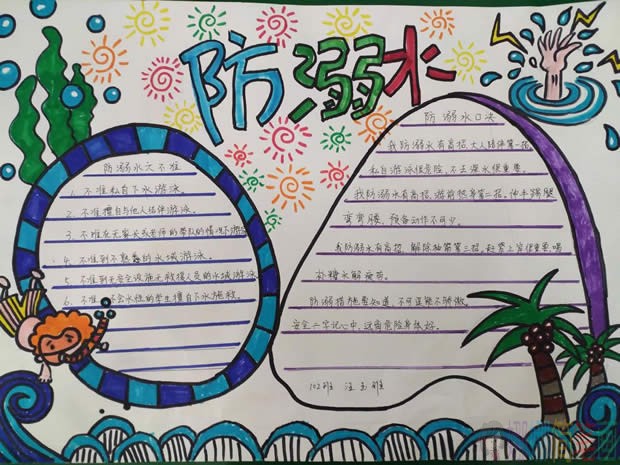 防溺水
防溺水六不准
1、不准私自下水游泳。
2、不准擅自与他人结伴游泳。
3、不准在无家长或老师的带队的情况下游泳
4、不准到不熟悉的水域游泳。
5、不准到无安全设施无救援人员的水域游泳
6、不准不会水性的学生擅自下水施救。
防溺水口决
我防溺水有高招,大人陪伴第一招,
私自游泳很危险,不去深水很重要。
我防溺水有高招,游前热身第二招,伸手踢腿
弯弯腰,预备动作不可少。
我防溺水有高招,解除抽筋第三招,赶紧上岸很重要,喝
杯糖水解疲劳。
防溺措施要知道,不可逞能不骄傲,
安全二字记心中,远离危险身体好。
102班 汪